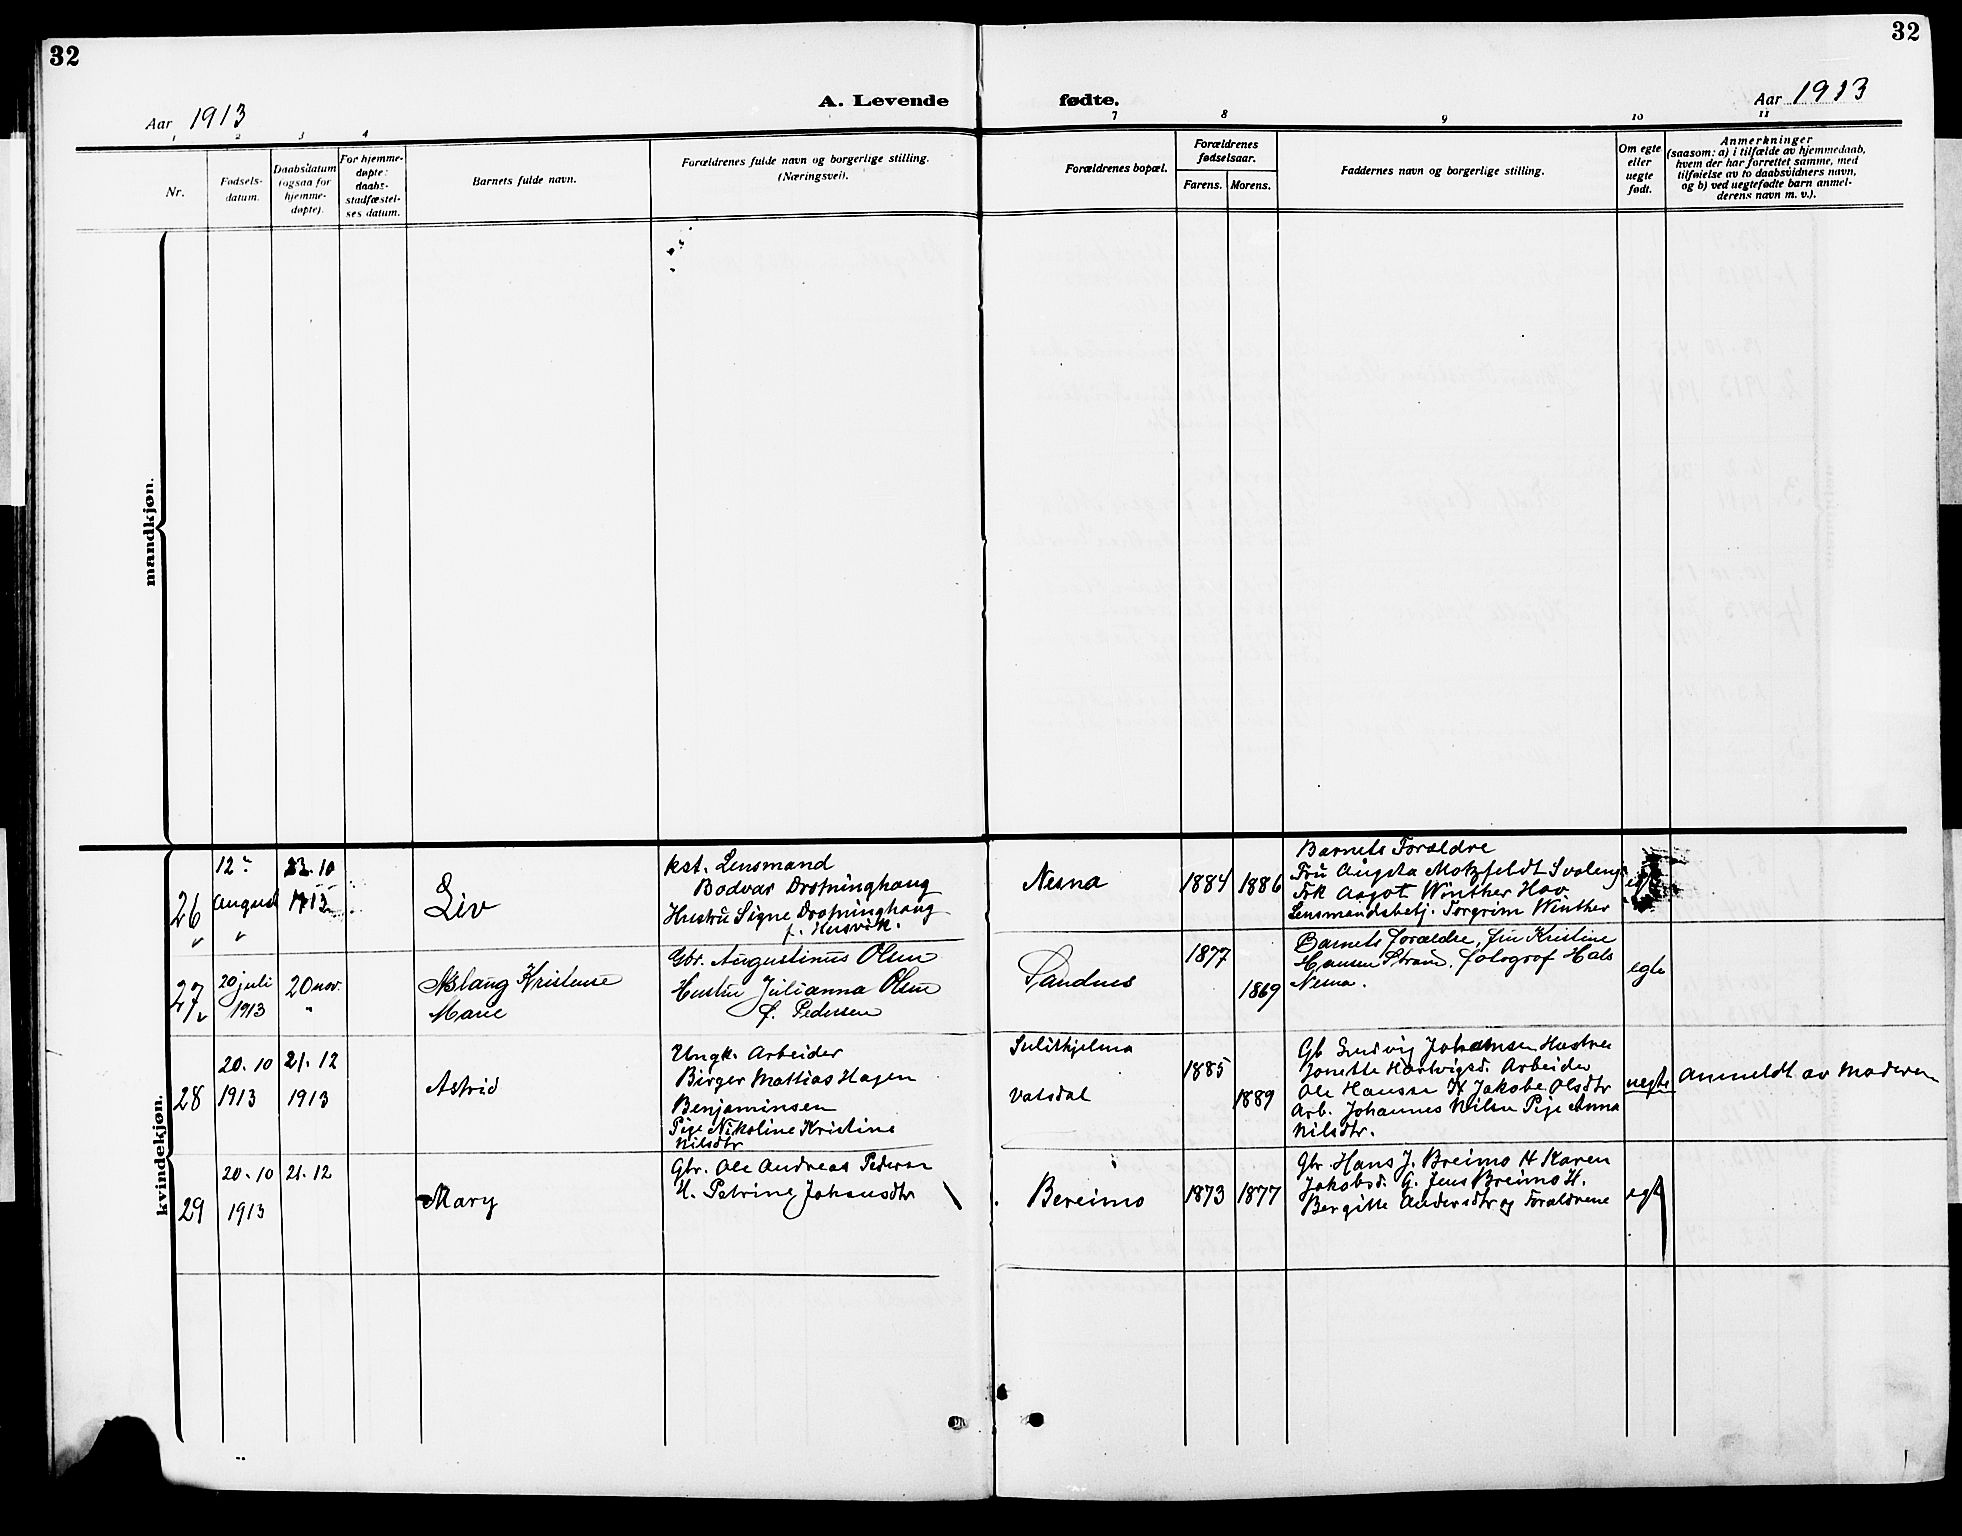 32
32
Aar 1913
A. Levende
fødte.
Aar 1913
1
2
3
4
7
8
9
10
11
Nr.
Fødsels-
datum.
Daabsdatum
(ogsaa for
hjemme-
døpte).
For hjemme-
døpte:
daabs-
stadfæstel-
ses datum.
Barnets fulde navn.
Forældrenes fulde navn og borgerlige stilling.
(Næringsvei).
Forældrenes bopæl.
Forældrenes
fødselsaar.
Farens.
Morens.
Faddernes navn og borgerlige stilling.
Om egte
eller
uegte
født.
Anmerkninger
(saasom: a) i tilfælde av hjemmedaab,
hvem der har forrettet samme, med
tilføielse av to daabsvidners navn,
og b) ved uegtefødte barn anmel-
derens navn m. v.).
mandkjøn.
kvindekjøn.
26
12
August
23.10
1913
Liv
kst. Lensmand
Bodvar Drotninghaug
Hustru Signe Drotninghaug
f. Husvik.
Nesna
1884
1886
Barnets Forældre
Fru Augusta Motzfeldt
Frk Aagot Winther Hov
Lensmandsbetj. Torgrim Winther
27
20 juli
1913
20 nov.
"
Aslaug Kristense
Marie
Gbr. Augustinus Olsen
Hustru Julianna Olsen
f. Pedersen
Sandnes
1877
1869
Barnets forældre, fru Kristine
Hansen Strand, fotograf Hals
Nesna.
egte
28
20.10
1913
21.12
1913
Astrid
Ungk. Arbeider
Birger Mattias Hagen
Benjaminsen
Pige Nikoline Kristine
Nilsdtr
Sulithjelma
Valsdal
1885
1889
Gb Ludvig Johansen Hustru
Jonette Hartvigsd. Arbeider
Ole Hansen H Jakobe Olsdtr
Arb. Johannes Nilsen Pige Anna
Nilsdtr.
uegte
Anmeldt av Moderen
29
20.10
1913
21.12
Mary
Gbr. Ole Andreas Pedersen
H. Petrine Johansdtr
Bereimo
1873
1877
Gbr Hans J. Breimo H Karen
Jakobsd. G. Jens Breimo H.
Bergitte Andersdtr og Forældrene
egte